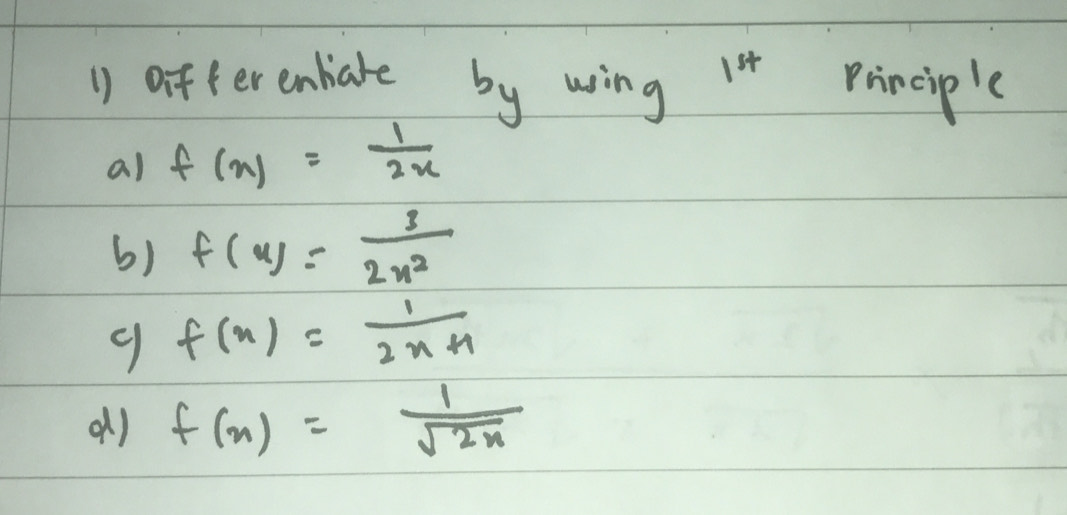 1) Differentiate by using 1st Principle
a) f(x) = 1/2x
b) f(x) = 3/2x²
c) f(x) = 1/2x+1
d) f(x) = 1/√2x